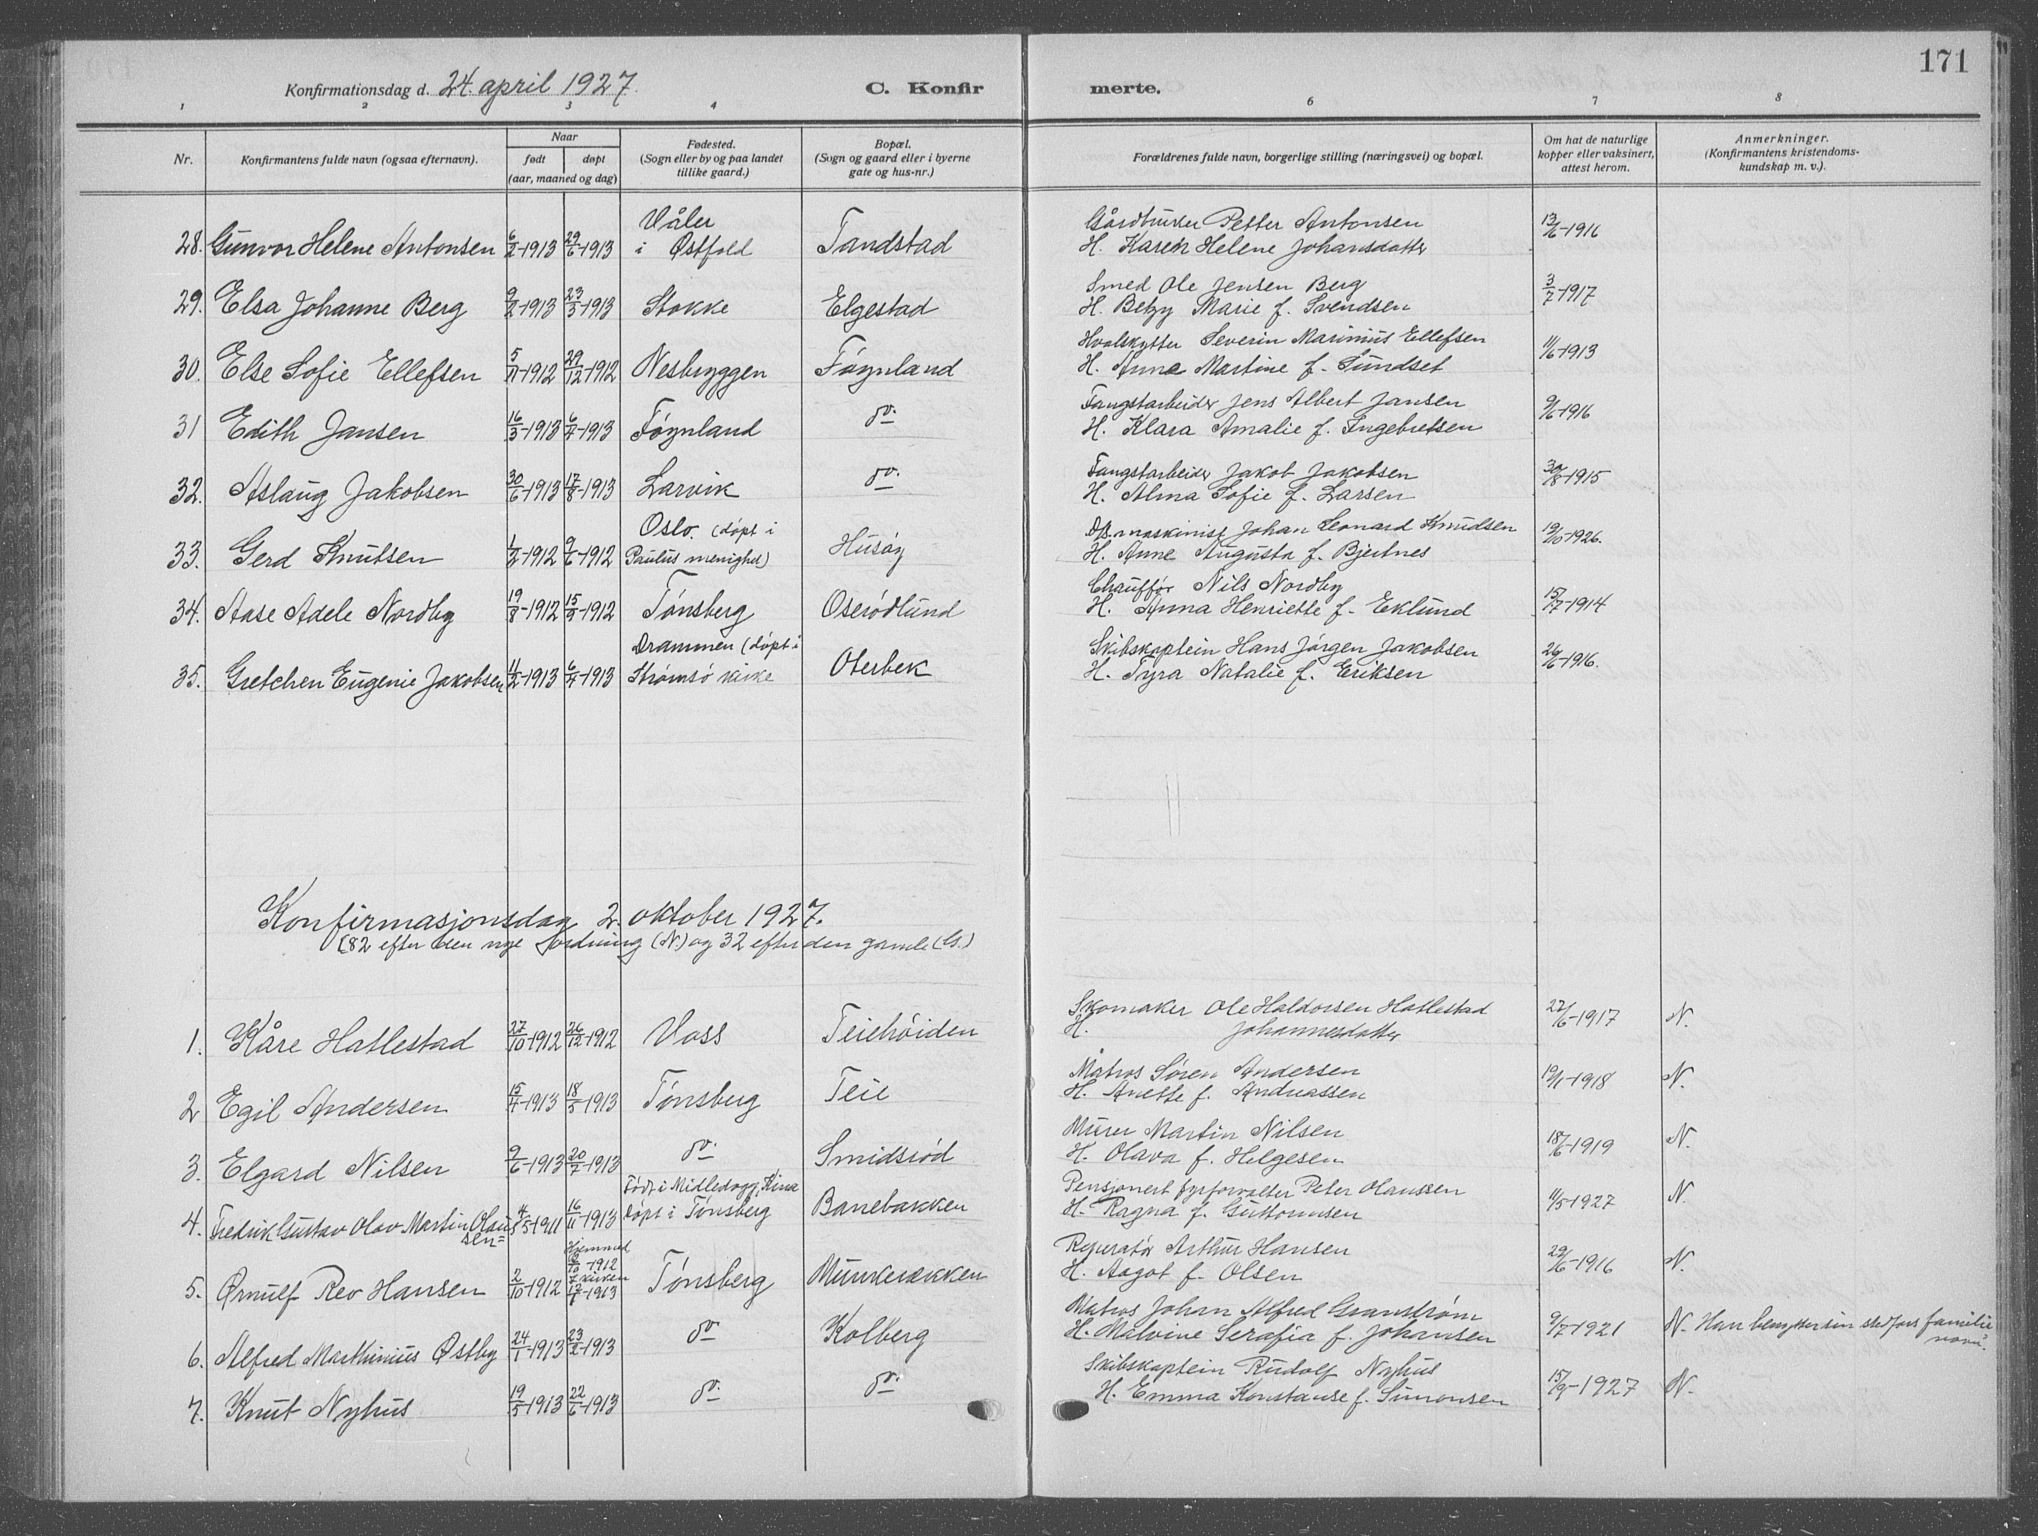 171
Konfirmationsdag d. 24. april 1927.
C. Konfirmerte.
1 2 3 4 6 7 8
Nr.
Konfirmantens fulde navn (ogsaa efternavn).
Naar
født døpt
(aar, maaned og dag)
Fødested.
(Sogn eller by og paa landet
tillike gaard.)
Bopæl.
(Sogn og gaard eller i byerne
gate og hus-nr.)
Forældrenes fulde navn, borgerlige stilling (næringsvei) og bopæl.
Om hat de naturlige
kopper eller vaksinert,
attest herom.
Anmerkninger.
(Konfirmantens kristendoms-
kundskap m. v.).
28. Gunvor Helene Antonsen 6/2-1913 29/6-1913 Våler i Østfold Tandstad
Gårdbruker Petter Antonsen
H. Karen Helene Johansdatter
13/6-1916
29. Elsa Johanne Berg 9/2-1913 23/3-1913 Stokke Elgestad
Smed Ole Jensen Berg
H. Betzy Marie f. Svendsen
3/7-1917
30. Else Sofie Ellefsen 5/11-1912 29/12-1912 Nesbryggen Føynland
Hvalskytter Severin Marinius Ellefsen
H. Anna Martine f. Sundset
11/6-1913
31 Edith Jansen 16/3-1913 6/4-1913 Føynland do.
Fangstarbeider Jens Albert Jansen
H. Klara Amalie f. Ingebretsen
9/6-1916
32. Aslaug Jakobsen 30/6-1913 17/8-1913 Larvik do.
Fangstarbeider Jakob Jakobsen
H. Alma Sofie f. Larsen
30/8-1915
33. Gerd Knutsen 1/2-1912 9/6-1912 Oslo. (døpt i
Paulus menighed) Husøy
maskinist Johan Leonard Knudsen
H. Anne Augusta f. Bjertnes
19/10-1926.
34. Aase Adele Nordby 19/8-1912 15/9-1912 Tønsberg Oserødlund
Chauffør Nils Nordby
H. Anna Henriette f. Eklund
15/7-1914
35. Gretchen Eugenie Jakobsen 11/2-1913 6/4-1913 Drammen (døpt i
Strømsø kirke Oterbek
Skibskaptein Hans Jørgen Jakobsen
H. Tyra Natalie f. Eriksen
26/6-1916.
Konfirmasjonsdag 2. oktober 1927.
(82 efter den nye ordning (N.) og 32 efter den gamle (G.)
1. Kåre Hatlestad 27/10-1912 26/12-1912 Voss Teiehøiden
Skomaker Ole Haldorsen Hatlestad
H. Johannesdatter
27/6-1917 N.
2 Egil Andersen 15/4-1913 18/5-1913 Tønsberg Teie
Matros Søren Andersen
H. Anette f. Andreassen
19/1-1918 N.
3. Elgard Nilsen 9/6-1913 20/7-1913 do. Smidsrød
Murer Martin Nilsen
H. Olava f. Helgesen
18/6-1919 N.
4. Fredrik Gustav Olav Martin Olau
sen= 4/5-1911 16/11-1913 Født i Midledogg, Kina
døpt i Tønsberg Banebakken
Pensjonert fyrforvalter Peter Olaussen
H. Ragna f. Guttormsen
11/5-1927 N.
5. Ørnulf Rev Hansen 2/10-1912 Hjemmed 1912
i kirken 1913 Tønsberg Munkerekken
Reperatør Arthur Hansen
H. Aagot f. Olsen
29/6-1916 N.
6. Alfred Marthinius Østby 24/1-1913 23/2-1913 do. Kolberg
Matros Johan Alfred Granstrøm
H. Malvine Serafia f. Johansen
9/7-1921 N. Han benytter sin stedfars familie
navn.
7. Knut Nyhus 19/5-1913 22/6-1913 do. do.
Skibskaptein Rudolf Nyhus
H. Emma Konstanse f. Simonsen
15/9-1927 N.